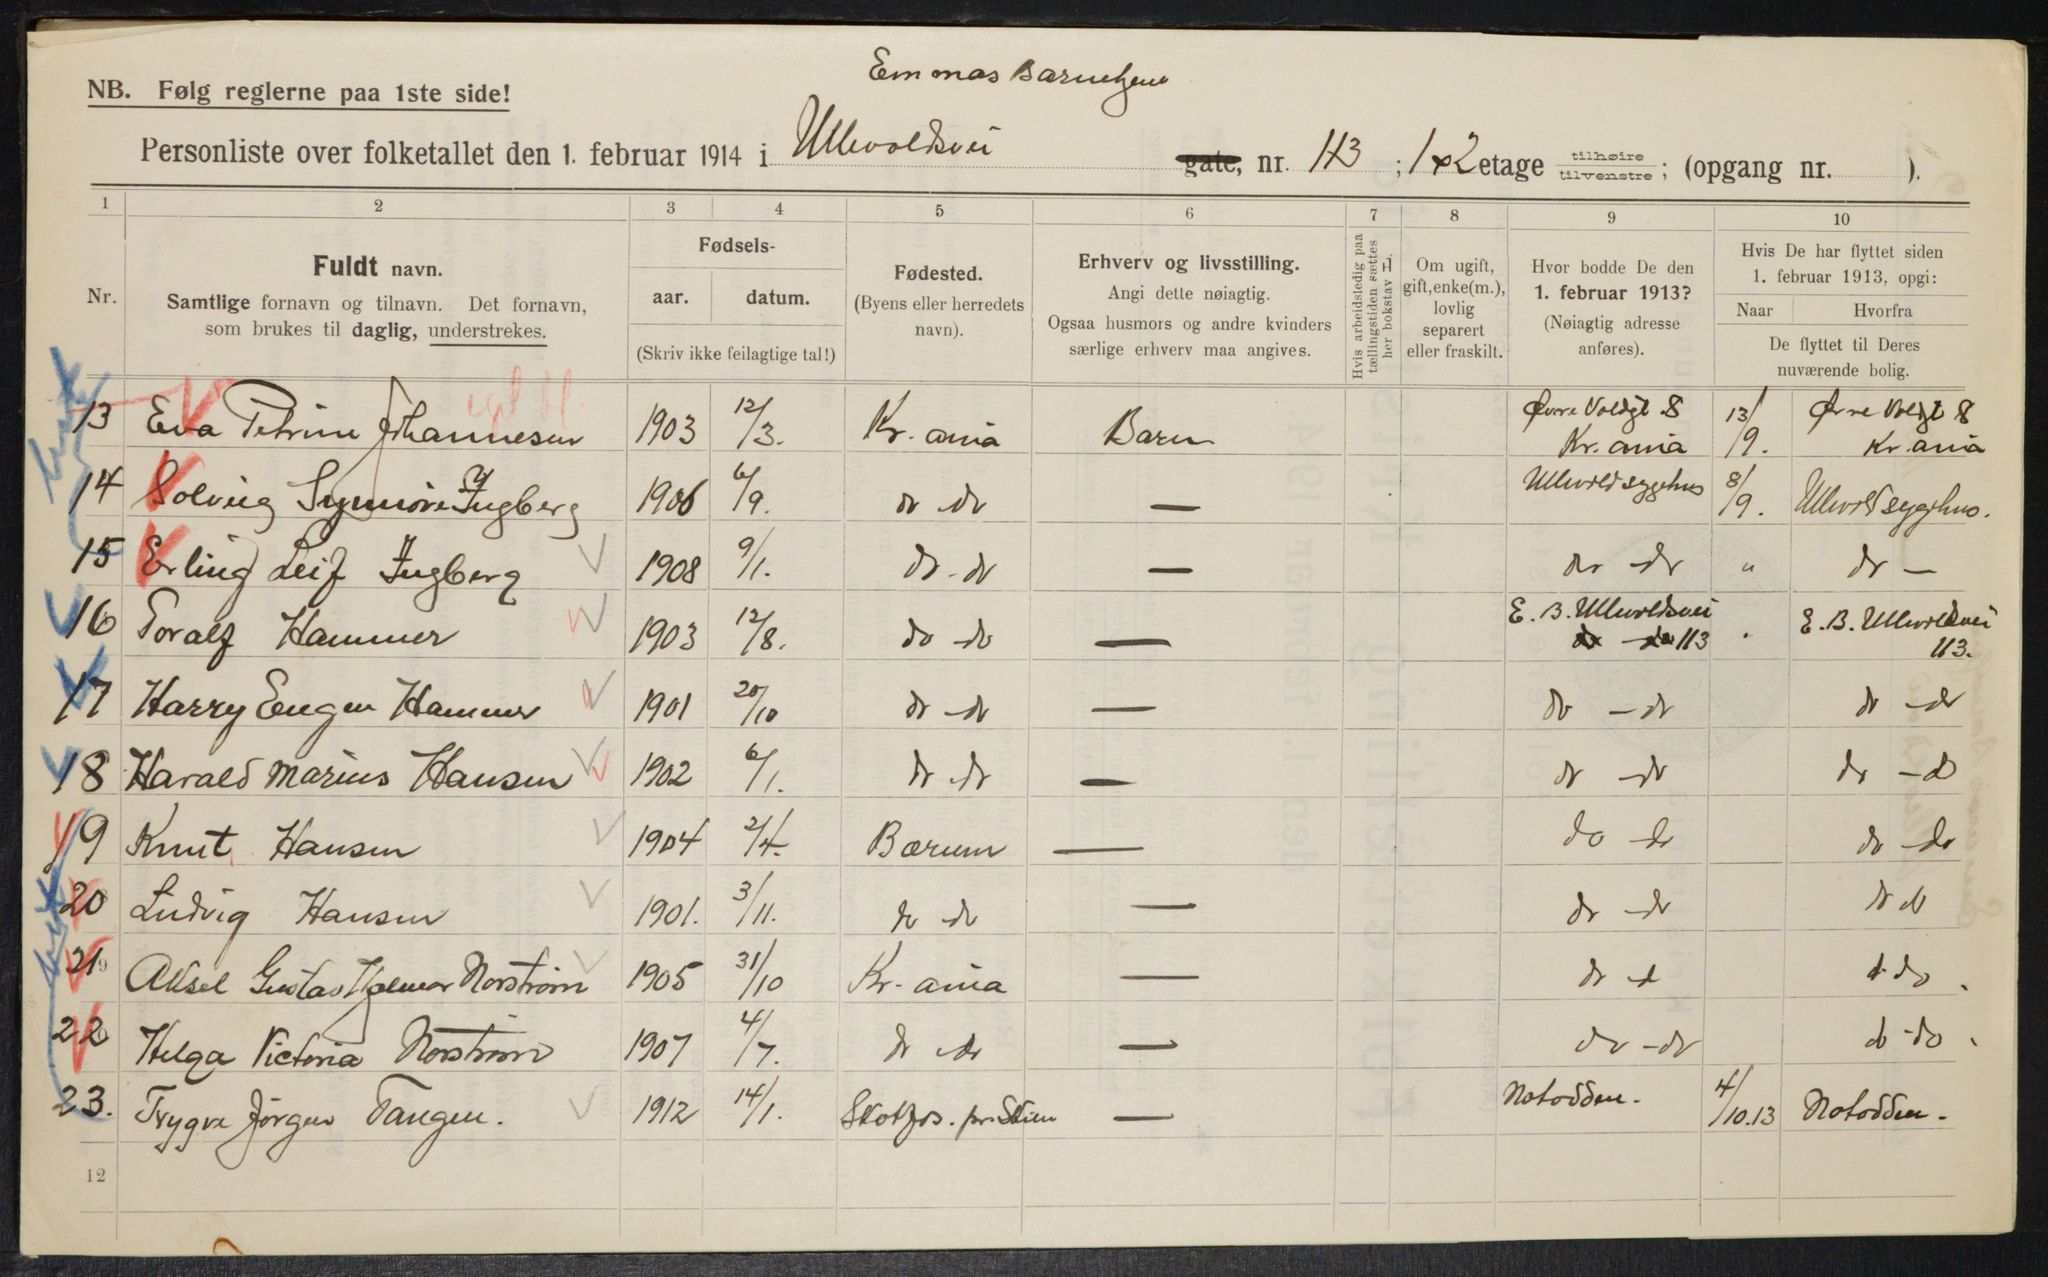 Emmas Barnehjem
NB. Følg reglerne paa 1ste side!
Personliste over folketallet den 1. februar 1914 i Ullevoldsvei gate, nr. 113 ; 1 x 2 etage tilhøire tilvenstre ; (opgang nr. ).
1 2 3 4 5 6 7 8 9 10
Nr.
Fuldt navn.
Samtlige fornavn og tilnavn. Det fornavn,
som brukes til daglig, understrekes.
Fødsels-
aar. datum.
(Skriv ikke feilagtige tal!)
Fødested.
(Byens eller herredets
navn).
Erhverv og livsstilling.
Angi dette nøiagtig.
Ogsaa husmors og andre kvinders
særlige erhverv maa angives.
Hvis arbeidsledig paa
tællingstiden sættes
her bokstav L
Om ugift,
gift, enke(m.),
lovlig
separert
eller fraskilt.
Hvor bodde De den
1. februar 1913?
(Nøiagtig adresse
anføres).
Hvis De har flyttet siden
1. februar 1913, opgi:
Naar Hvorfra
De flyttet til Deres
nuværende bolig.
13 Eva Petrine Johannesen 1903 12/3. Kr. ania Barn Øvre Voldgt 8 Kr. ania 13/9. Øvre Voldgt 8 Kr. ania
14 Solveig Synnøve Ingberg 1906 6/9. do do — Ullevold sygehus 8/9. Ullevold sygehus.
15 Erling Leif Ingberg 1908 9/1. do - do — do - do " do —
16 Toralf Hammer 1903 12/8. do - do — E. B. Ullevoldsvei 113 " E. B. Ullevoldsvei 113.
17 Harry Eugen Hammer 1901 20/10 do - do — do - do do - do
18 Harald Marius Hansen 1902 6/1. do - do — do - do do - do
19 Knut Hansen 1904 2/4. Bærum — do - do do - do
20 Ludvig Hansen 1901. 3/11. do - do — do - do do do
21 Aksel Gustav Hjalmar Norstrøm 1905 31/10 Kr. ania — do - do do do
22 Helga Victoria Norstrøm 1907 4/7. do - do — do - do do - do
23. Trygve Jørgen Tangen. 1912 14/1. Skotfos. pr. Skien — Notodden. 4/10.13 Notodden.
12